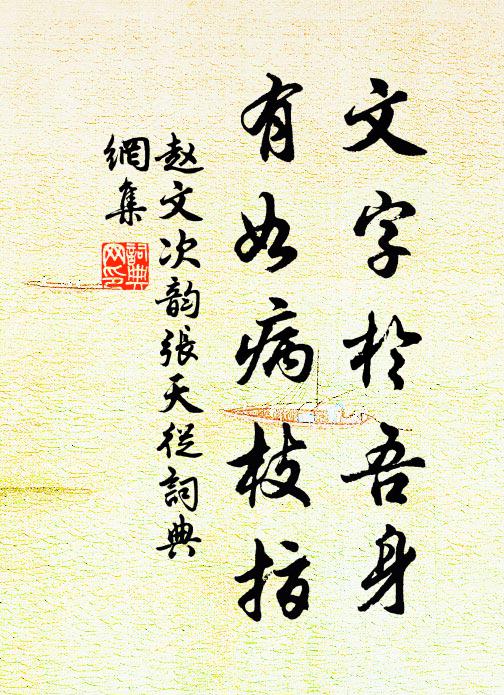 文字於吾身
有如病枝指
赵文次韵張天從詞典
網集
詞典
网印